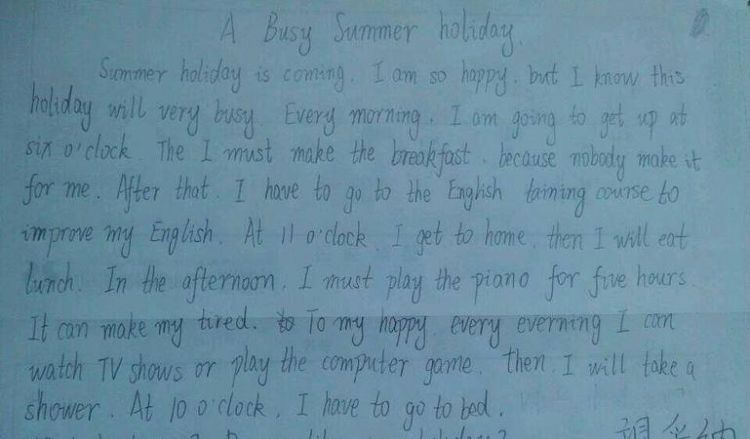 A Busy Summer holiday.
Summer holiday is coming. I am so happy. but I know this
holiday will very busy. Every morning. I am going to get up at
six o'clock. The I must make the breakfast. because nobody make it
for me. After that. I have to go to the English taining course to
improve my English. At 11 o'clock. I get to home. then I will eat
lunch. In the afternoon. I must play the piano for five hours.
It can make my tired. To my happy. every everning I can
watch TV shows or play the computer game. Then. I will take a
shower. At 10 o'clock. I have to go to bed.